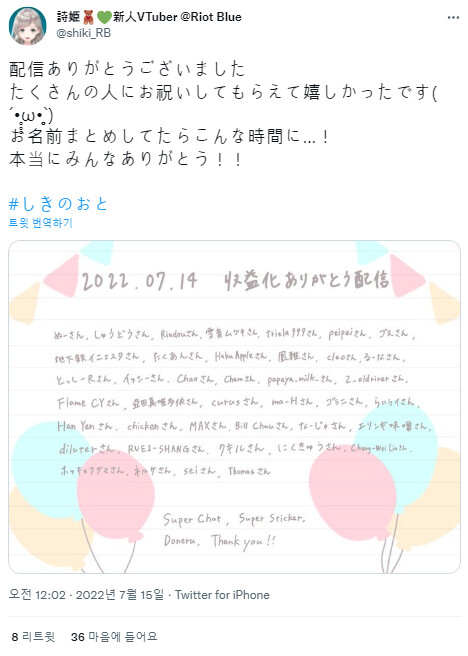 詩姫🧸💚新人VTuber @Riot Blue
@shiki_RB
配信ありがとうございました
たくさんの人にお祝いしてもらえて嬉しかったです(
´•̥ω•̥`)
お名前まとめしてたらこんな時間に...！
本当にみんなありがとう！！
#しきのおと
트윗 번역하기
2022.07.14 収益化ありがとう配信
ぬーさん, しゅうどうさん, Rindouさん, 雪音ムツキさん, triela999さん, peipeiさん,
地下鉄イニエスタさん, たくあんさん, HakuAppleさん, 風雅さん, cleoさん,
とっしーRさん, イッシーさん, Chaoさん, Chamさん, papaya_milk_さん, Z_oldriverさん,
Flame CYさん, curusさん, ma-Hさん, ゴラニさん, らいライさん,
Han Yenさん, chickenさん, MAXさん, Bill Chauさん, なーじゅさん, エリンギ味噌さん,
diluterさん, RUEI-SHANGさん, ワキルさん, にくきゅうさん, Chong-Wei Linさん,
ホッキョクグマさん, ネルケさん, seiさん, Thomasさん
Super Chat, Super Sticker,
Doneru, Thank you!!
오전 12:02 · 2022년 7월 15일 · Twitter for iPhone
8 리트윗 36 마음에 들어요